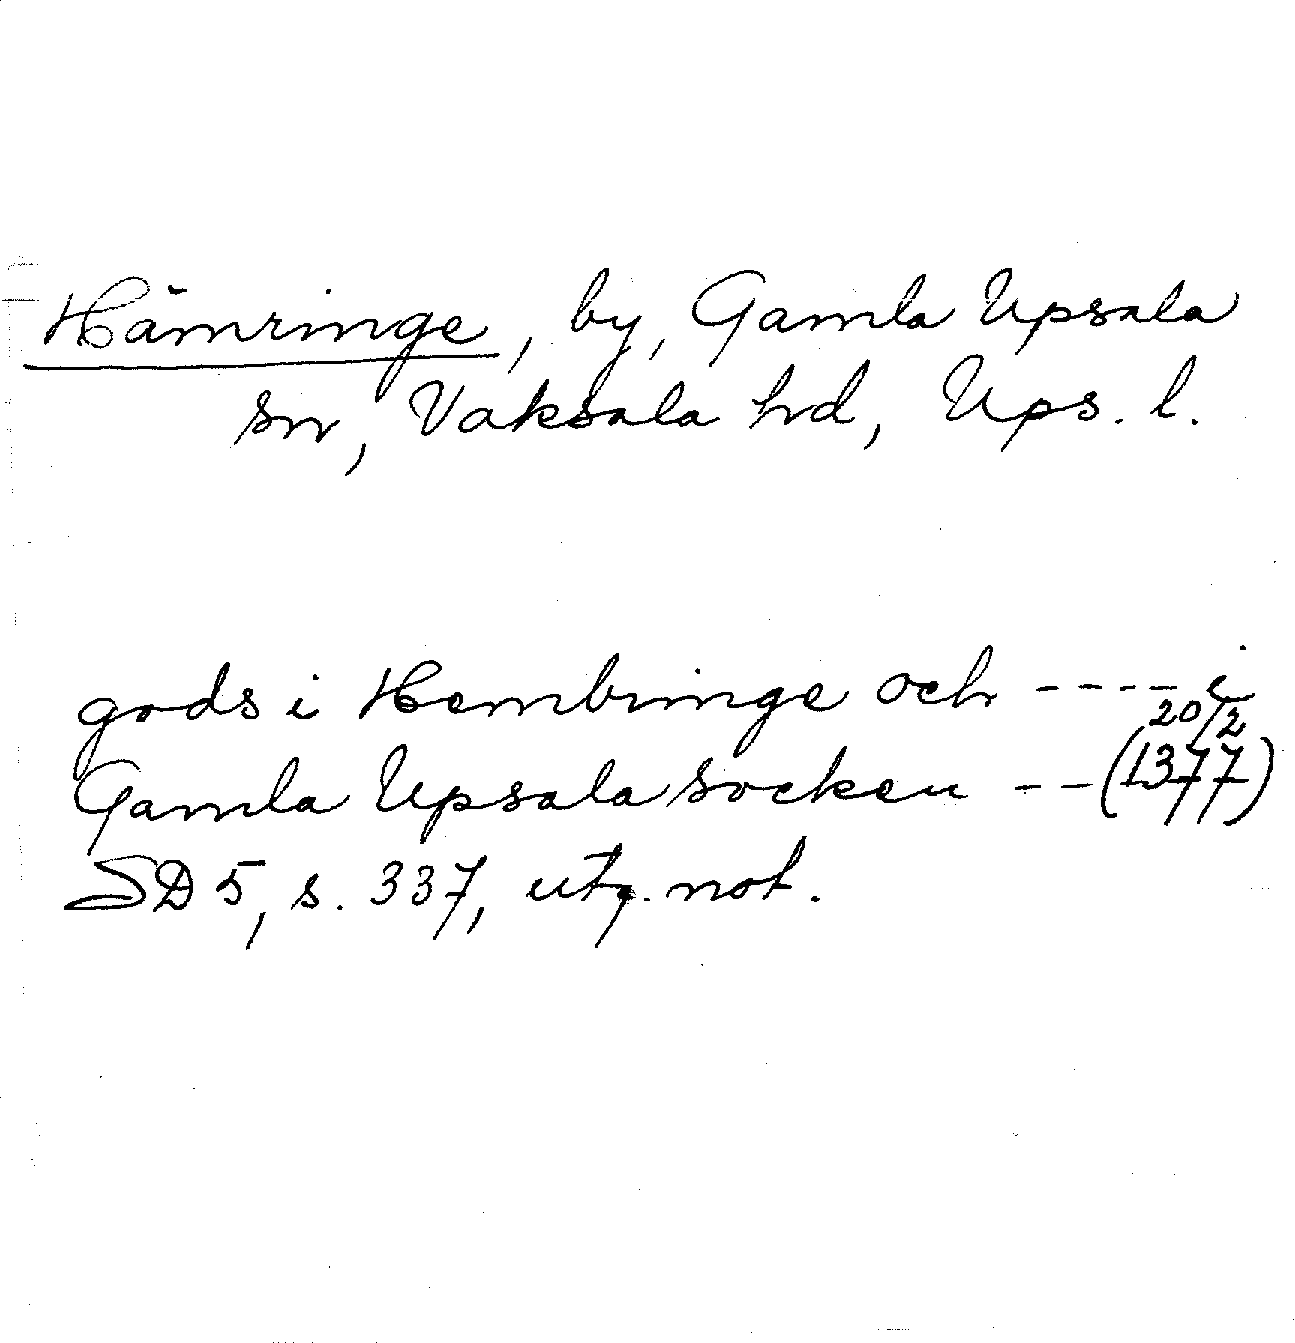 Hämringe, by, Gamla Upsala
sn, Vaksala hd, Ups. l.
gods i Hembringe och ----- i
Gamla Upsala socken -- (20/2 1377)
SD 5, s. 337, utg. not.